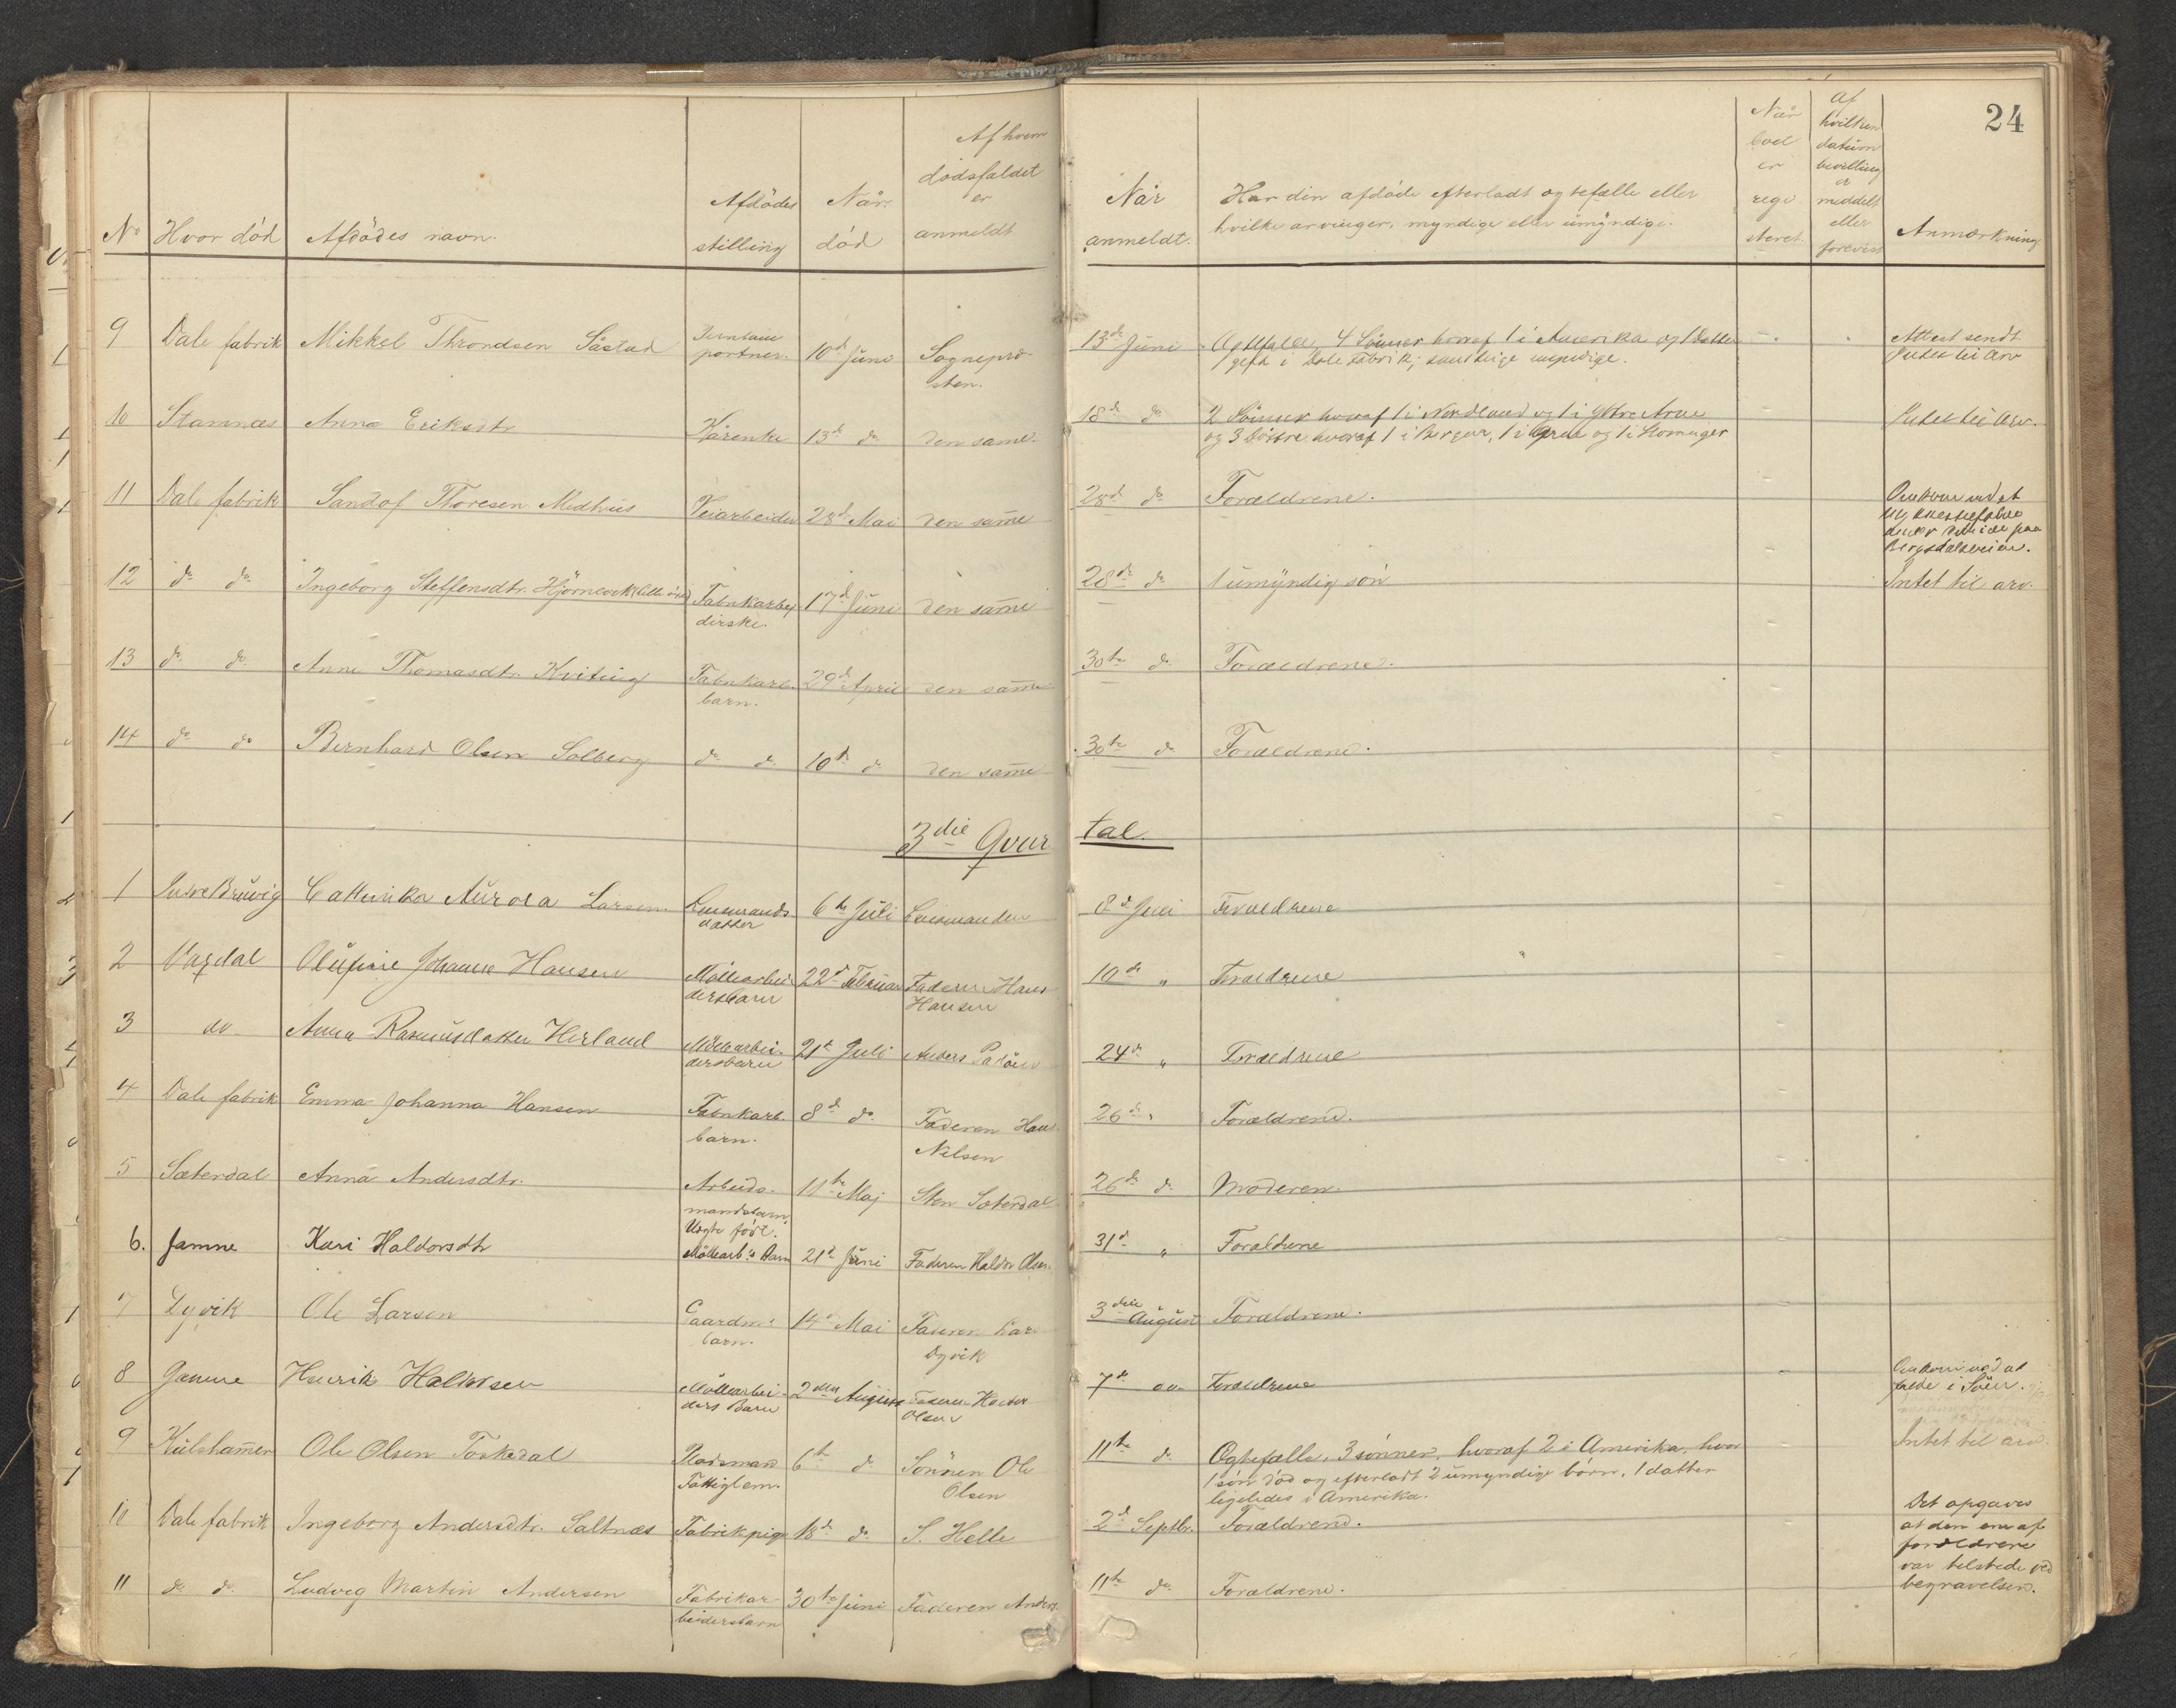 24
No Hvor död Afdödes navn. Afdödes stilling Når död Af hvem dödsfaldet er anmeldt Når anmeldt. Har den afdöde efterladt ægtefælle eller hvilke arvinger, myndige eller umyndige. Når boet er regi steret. Af hvilken datum bevilling er meddelt eller forevist Anmærkning
9 Dale fabrik Mikkel Throndsen Såstad portner. 10d Juni Sognepre-
sten. 13de Juni Ægtefælle, 4 Sönner hvoraf 1 i Amerika og 1 Datter
gift i Dale Fabrik; samtlige myndige. Attest sendt
Intet til Arv
10 Stamnæs Anna Eriksdtr Kårenke 13d do den same. 18de do 2 Sönner hvoraf 1 i Nordland og 1 i Ytre Arne
og 3 Döttre hvoraf 1 i Bergen, 1 i Arne og 1 i Intet til Arv.
11 Dale fabrik Sandof Thoresen Midhus Veiarbeider 28d Mai den same 28d do Forældrene. Omkom ved et
under arbeide paa
Bergsdalsveien.
12 do do Ingeborg Steffensdtr. Fabrikarbei
derske. 17d Juni den same 28de do 1 umyndig sön Intet til arv.
13 do do Anne Thomasdtr. Kviting Fabrikarb.
barn. 29d April den same 30te do Forældrene.
14 do do Bernhard Olsen Solberg do do 10de do den same 30te do Forældrene.
3die Qvar tal.
1 Indre Bruvig Cathrinka Aurora Larsen Lensmands
datter 6te Juli Lensmanden 8d Juli Forældrene
2 Vaxdal Olufine Johanne Hansen Möllearbei
dersbarn 22d Februar Faderen Hans
Hansen 10de " Forældrene
3 do Anna Rasmusdatter Herland Möllearbei-
dersbarn 21de Juli Anders 24de " Forældrene
4 Dale fabrik Emma Johanna Hansen Fabrikarb.
barn. 8d do Faderen Hans
Nilsen 26de " Forældrene.
5 Sæterdal Anna Andersdtr. Arbeids-
mandsbarn,
Uægte född. 11te Maj Sten Sæterdal 26de do Moderen.
6. Jamne Kari Haldorsdtr Möllearb.s Barn 21de Juni Faderen Haldor Olsen. 31d " Forældrene
7 Dyvik Ole Larsen Gaardm.s
barn. 14de Mai Faderen Lars
Dyvik 3die August Forældrene.
8 Jamne Henrik Haldorsen Möllearbei-
ders Barn 2den August Faderen Haldor
Olsen 7de do Forældrene Omkom ved at
falde i Söen.
9 Kulshammer Ole Olsen Toskedal Pladsmand
Fattiglem. 6te do Sönnen Ole
Olsen 11te do Ægtefælle, 3 sönner, hvoraf 2 i Amerika, hvor
1 sön död og efterladt 2 umyndige börn, 1 datter
ligeledes i Amerika. Intet til arv.
10 Dale fabrik Ingeborg Andersdtr. Saltnæs Fabrikpige 18d do S. Helle 2d Septbr. Forældrene. Det opgaves
at den ene af
forældrene
var tilstede ved
begravelsen.
11 do do Ludvig Martin Andersen Fabrikar-
beidersbarn 30te Juni Faderen Anders. 11te do Forældrene.